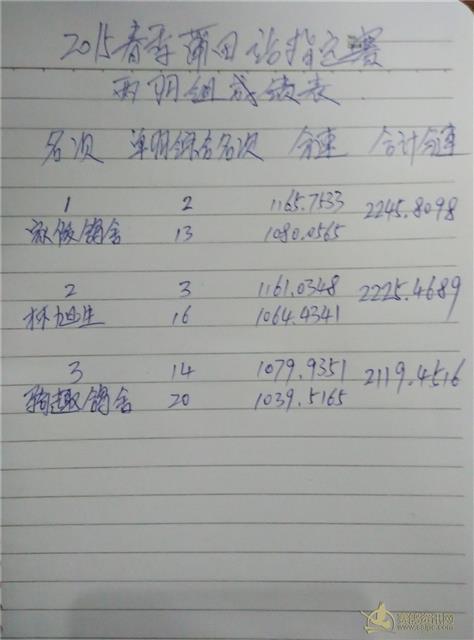 2015春季莆田站指定赛
两羽组成绩表
名次 单羽综合名次 分速 合计分速
1 2 1165.7533 2245.8098
鸽舍 13 1080.0565
2 3 1161.0348 2225.4689
林旭生 16 1064.4341
3 14 1079.9351 2119.4516
翔趣鸽舍 20 1039.5165